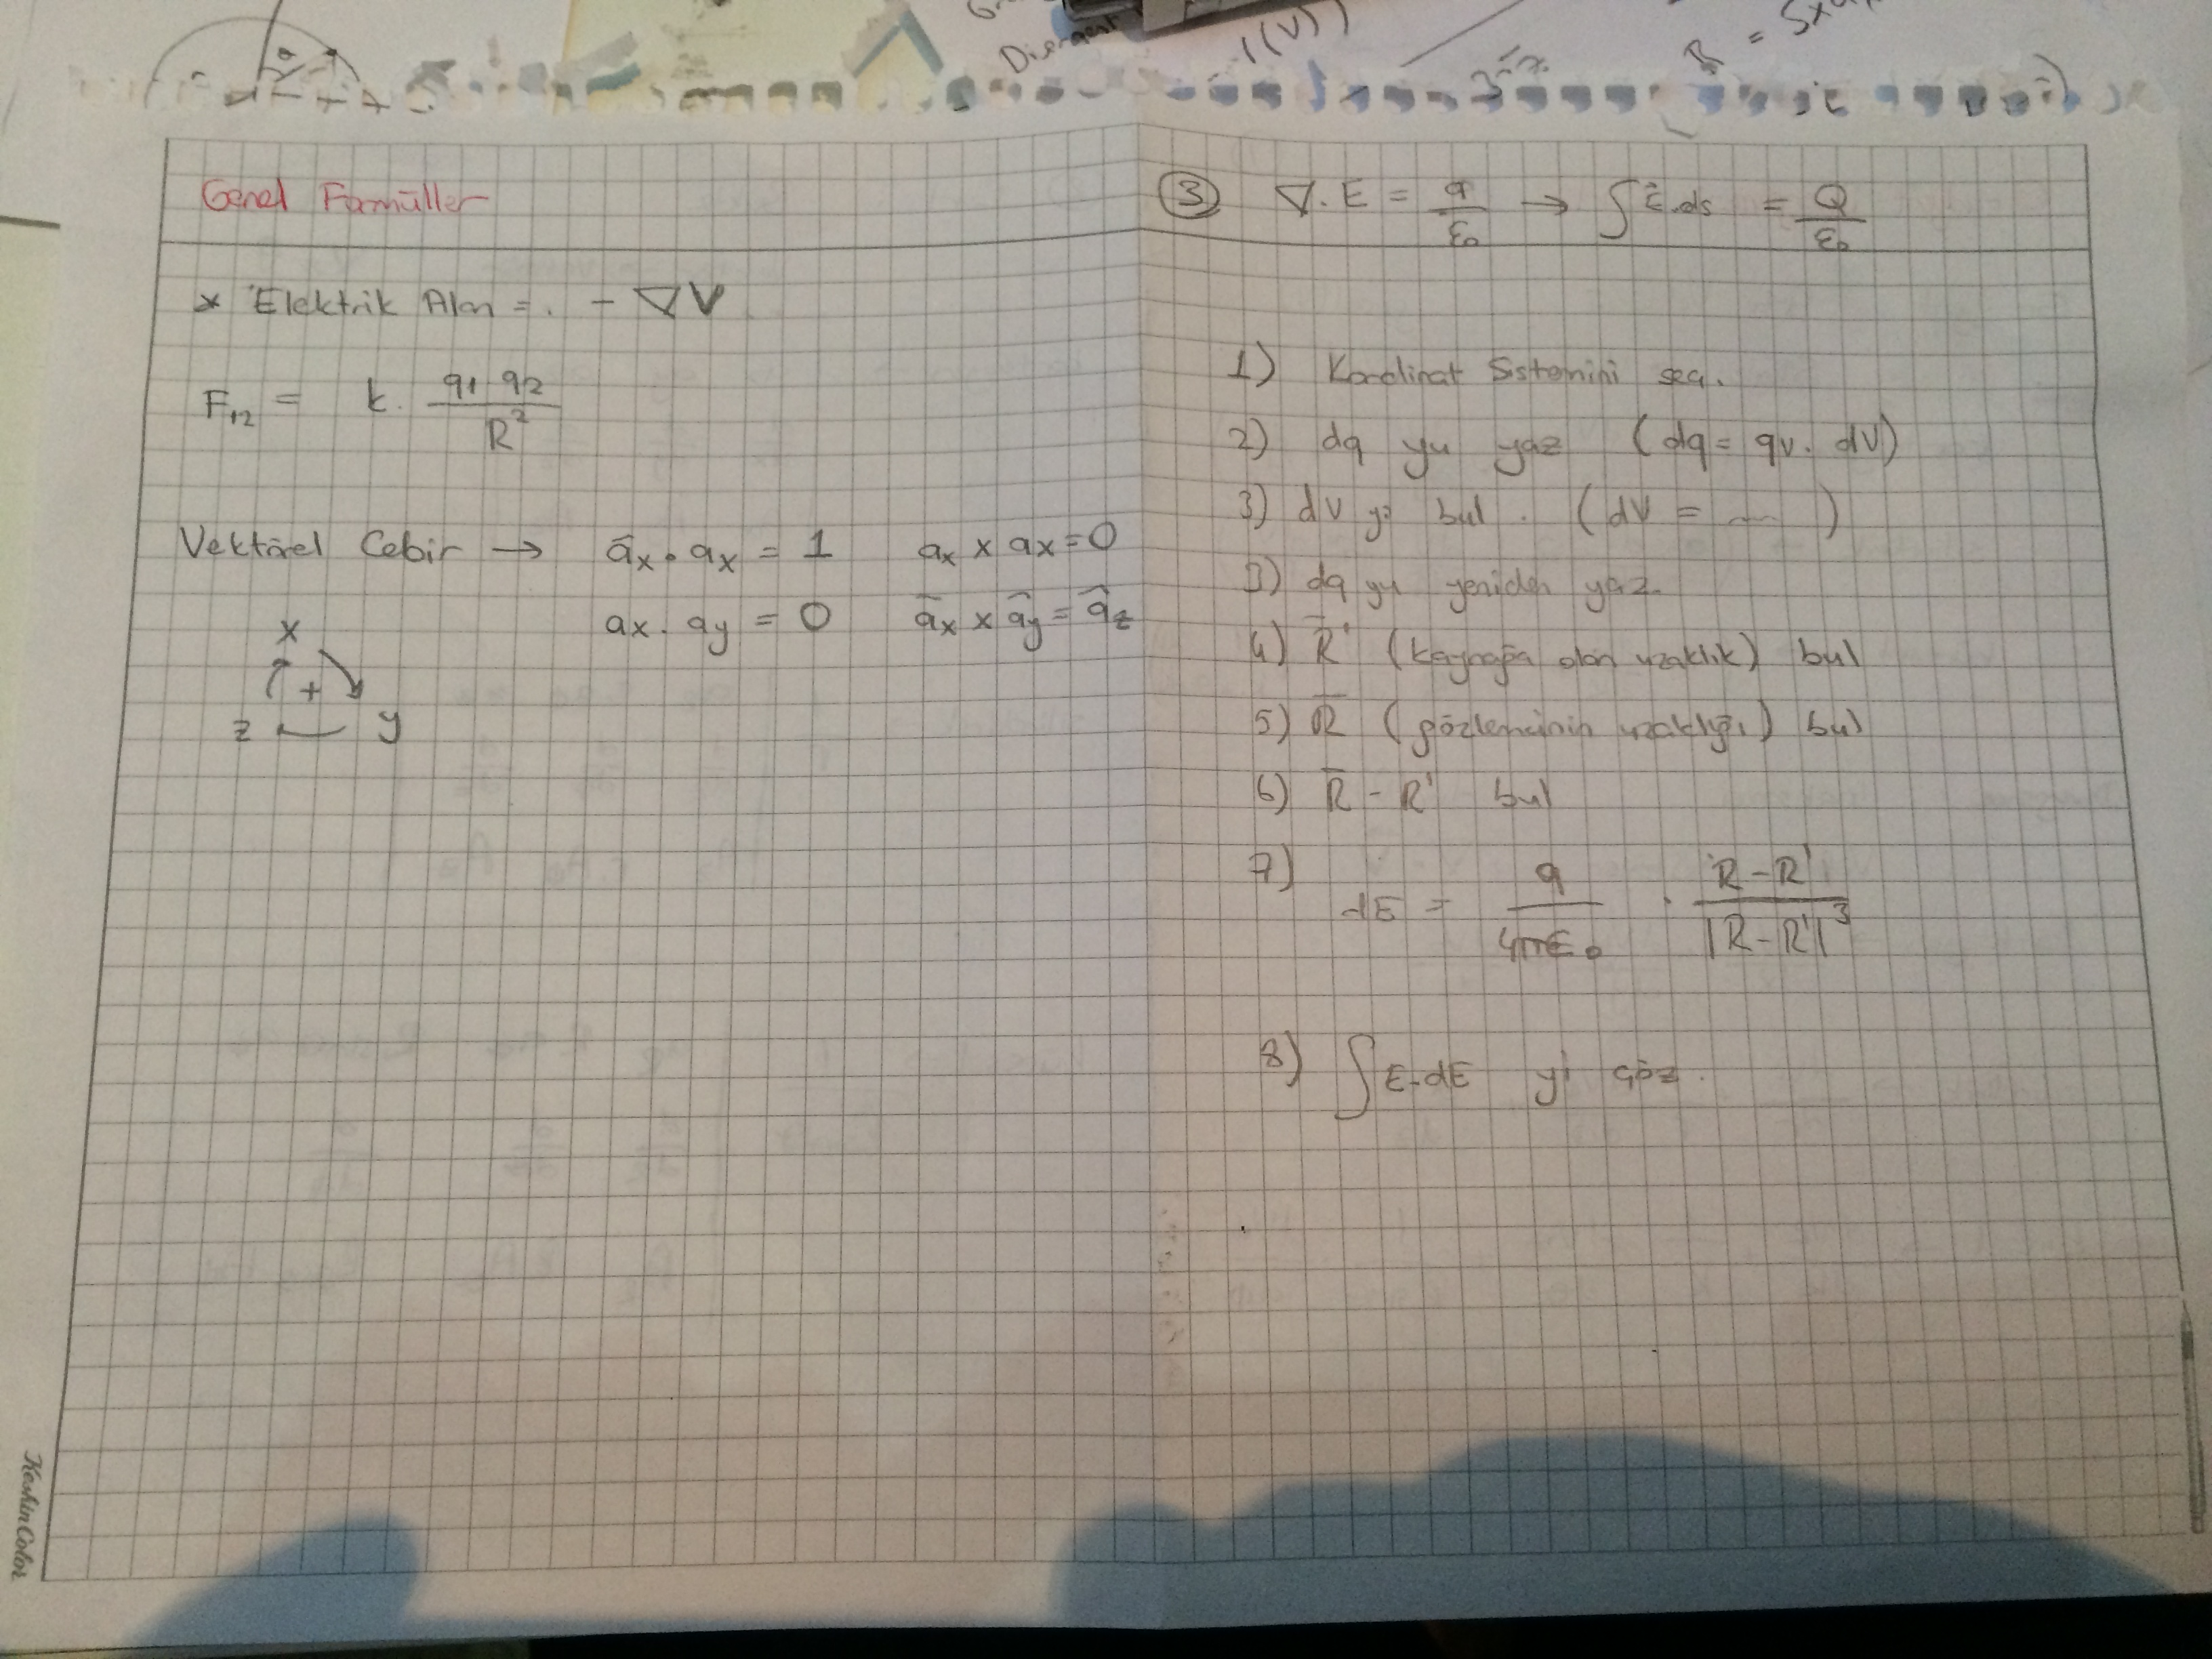 Genel Formüller
* Elektrik Alan = . - ∇V
F₁₂ = k. q₁ q₂ / R²
Vektörel Cebir → āx • ax = 1   ax x ax = 0
ax . ay = 0   āx x ây = âz
x
+
z y
③ ∇. E = q / ε₀ → ∫ E.ds = Q / ε₀
1) Kordinat Sistemini seç.
2) dq yu yaz (dq = qv. dV)
3) dV yi bul . (dV = ---- )
3) dq yu yeniden yaz.
4) R̄' (kaynağa olan uzaklık) bul
5) R̄ (gözlemcinin uzaklığı) bul
6) R̄ - R' bul
7) dE = q / 4πε₀ . R-R' / |R-R'|³
8) ∫ E-dE yi çöz.
KeskinColor